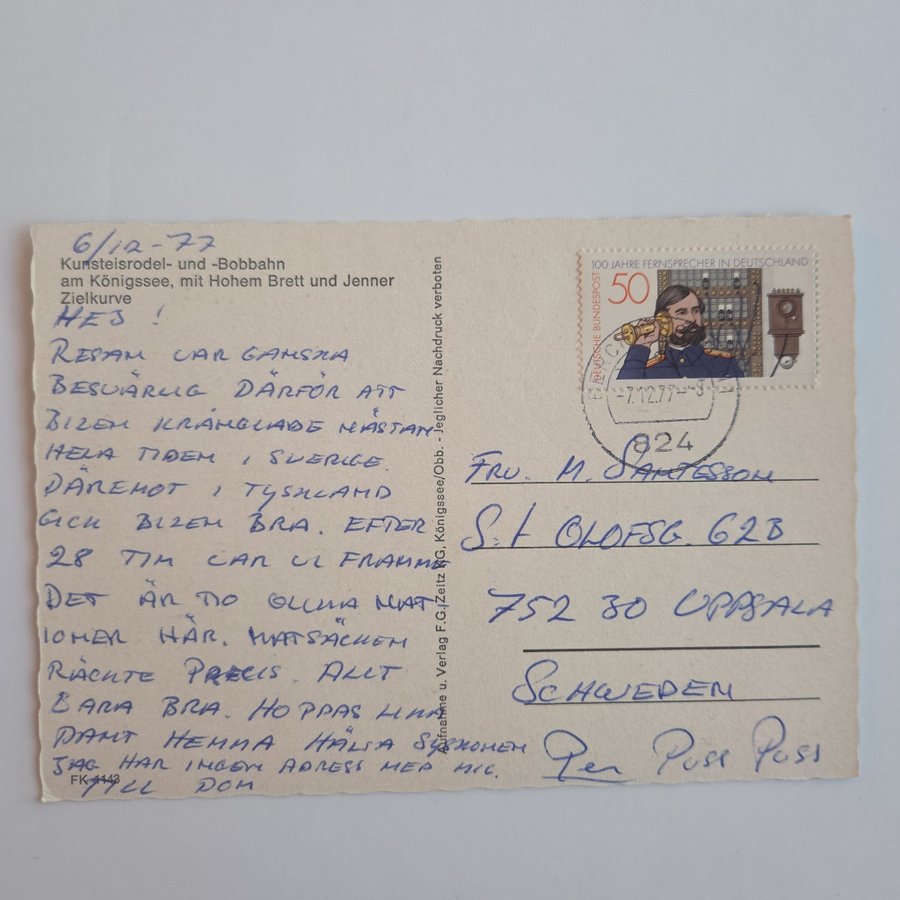 6/12-77
Kunsteisrodel- und -Bobbahn
am Königssee, mit Hohem Brett und Jenner
Zielkurve
HEJ !
RESAN VAR GANSKA
BESVÄRLIG DÄRFÖR ATT
BILEN KRÅNGLADE NÄSTAN
HELA TIDEN I SVERIGE.
DÄREMOT I TYSKLAND
GICK BILEN BRA. EFTER
28 TIM VAR VI FRAMME
DET ÄR 10 OLIKA NAT
IONER HÄR. MATSÄCKEN
RÄCKTE PRECIS. ALLT
BARA BRA. HOPPAS LIKA
DANT HEMMA HÄLSA SYSKONEN
JAG HAR INGEN ADRESS MED MIG.
TILL DOM
FK 1143
Aufnahme u. Verlag F.G. Zeitz KG, Königssee/Obb. - Jeglicher Nachdruck verboten
100 JAHRE FERNSPRECHER IN DEUTSCHLAND
50
DEUTSCHE BUNDESPOST
-7.12.77-
824
FRU. M. SANTESSON
S:t OLOFSG. 62B
752 30 UPPSALA
SCHWEDEN
Per Puss Puss